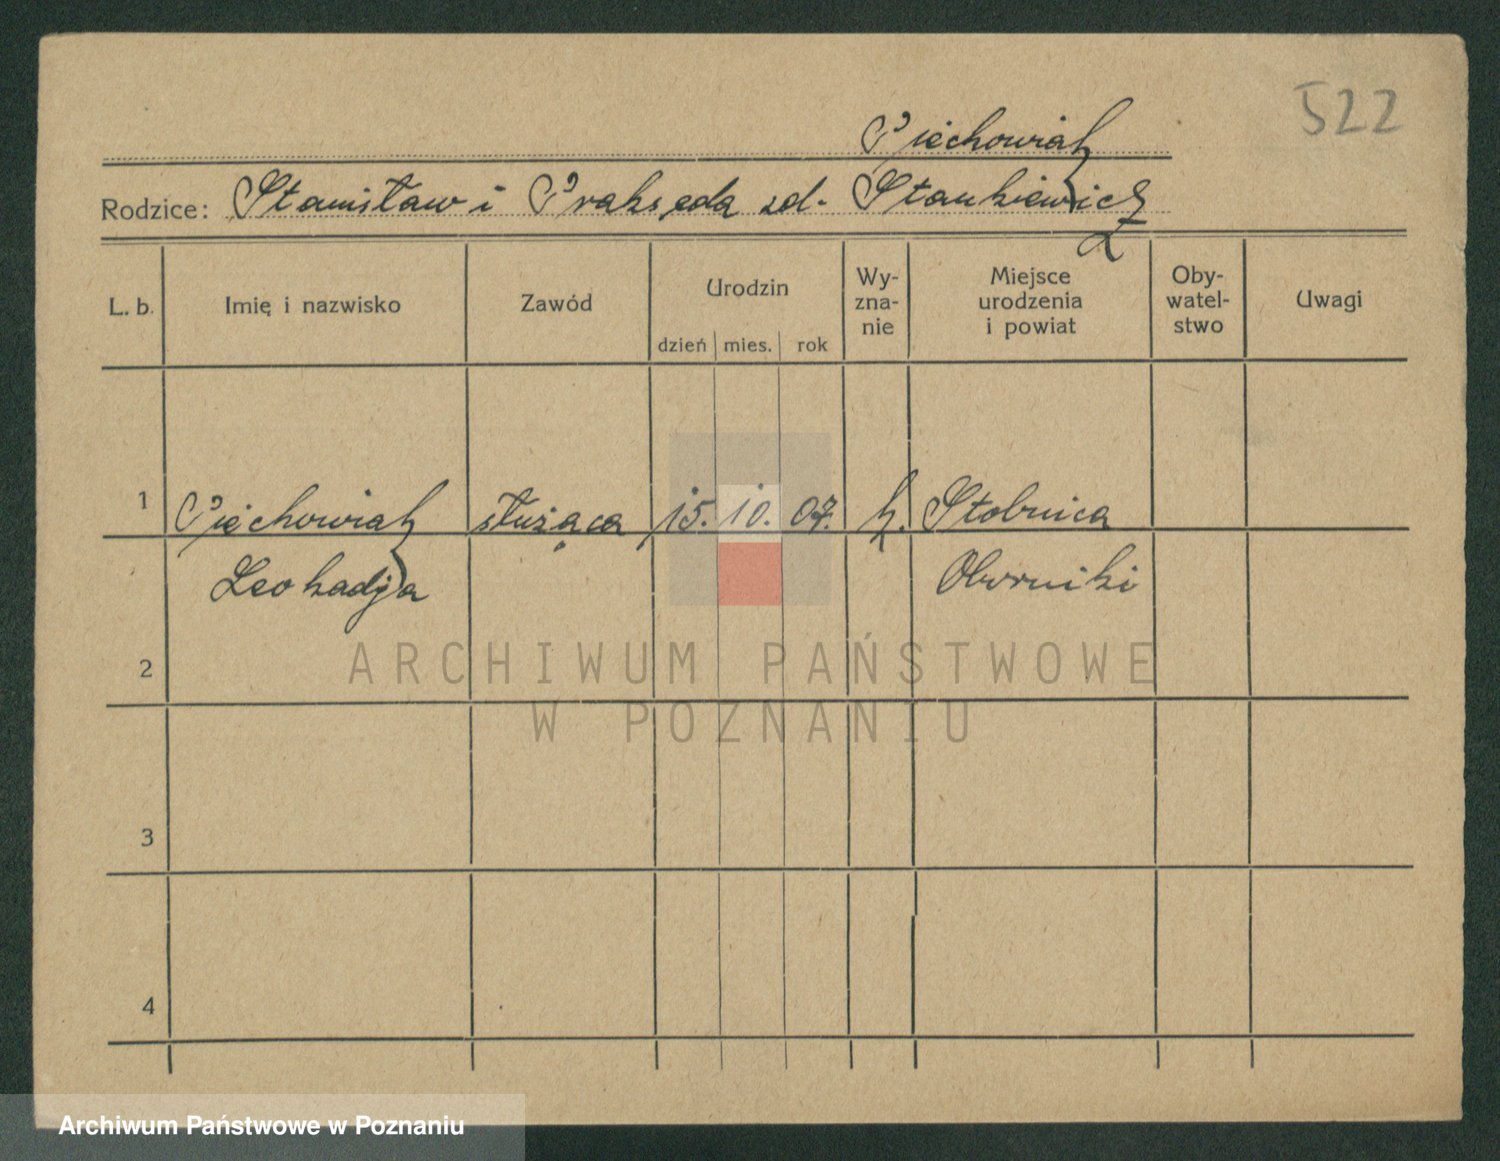 522
Piechowiak
Rodzice: Stanisław i Prakseda zd. Stankiewicz
L. b. Imię i nazwisko Zawód Urodzin dzień mies. rok Wy-zna-nie Miejsce urodzenia i powiat Oby-watel-stwo Uwagi
1 Piechowiak służąca 15. 10. 07. k. Stobnica
Leokadja Oborniki
2
ARCHIWUM PAŃSTWOWE
W POZNANIU
3
4
Archiwum Państwowe w Poznaniu